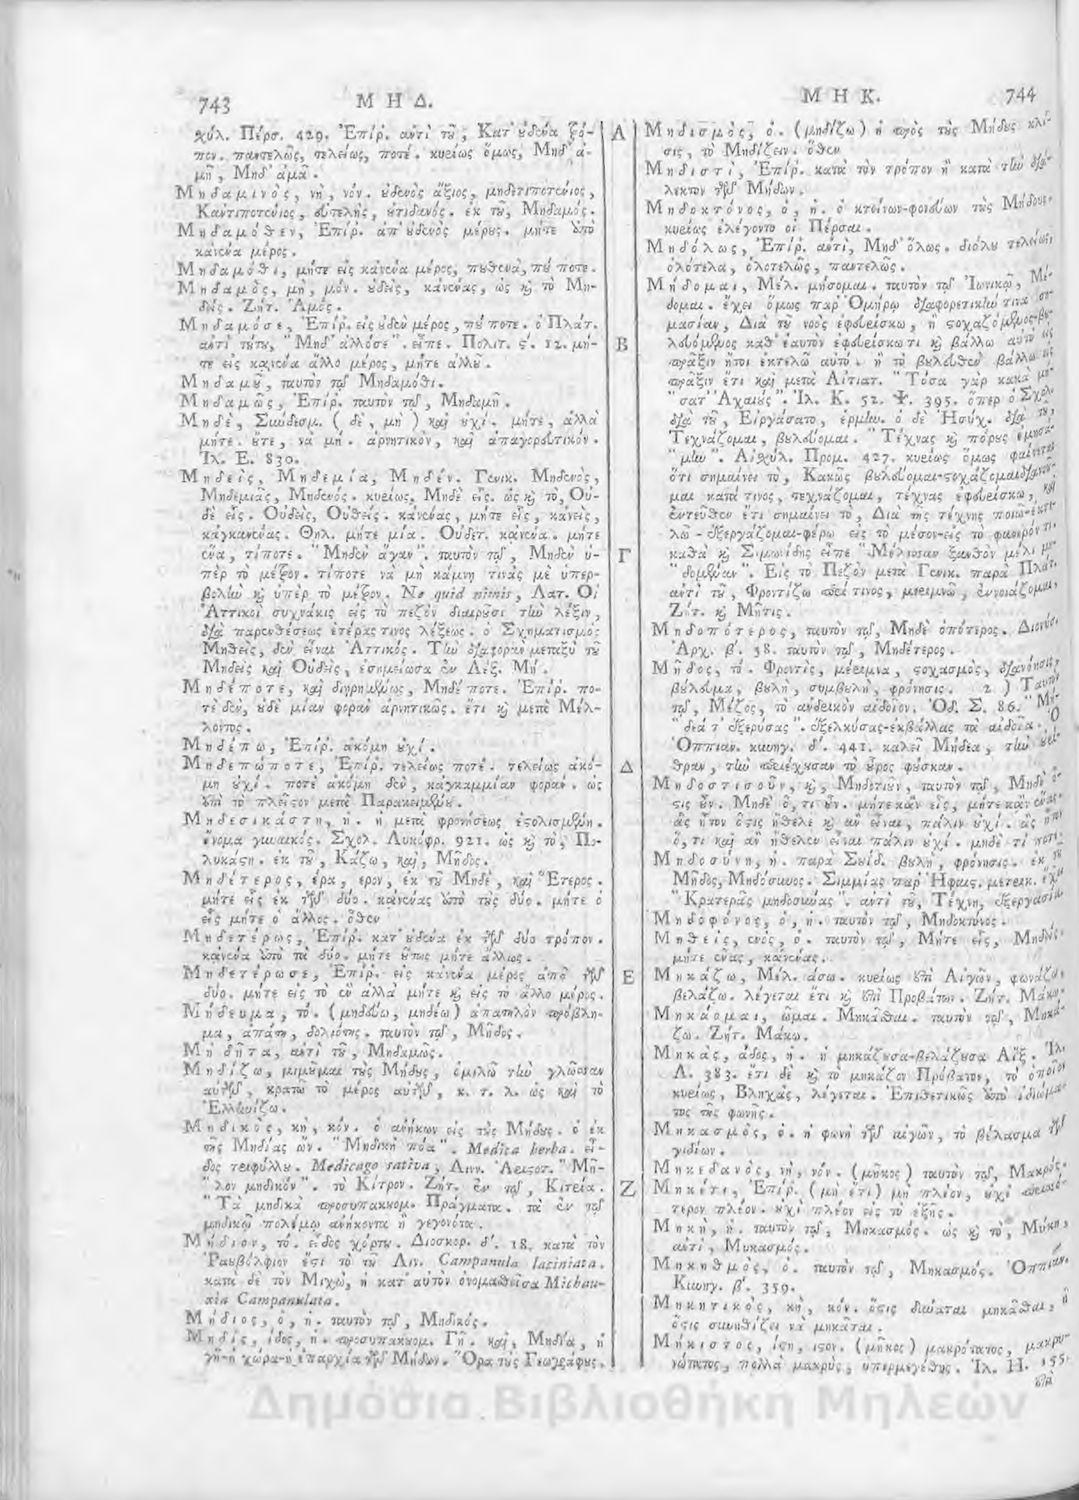 743 ΜΗΔ.
χύλ. Πέρσ. 429. Ἐπίρ. αὐτὶ τοῦ, Κατ' οὐδένα τρό-
πον. παντελῶς, τελείως, ποτέ. κυρίως ὅμως, Μηδ' ἁ-
μῆ, Μηδ' ἁμᾶ.
Μηδαμινὸς, νὴ, νόν. οὐδενὸς ἄξιος, μηδετιποτένιος,
Καντιποτένιος, εὐτελὴς, οὐτιδανός. ἐκ τοῦ, Μηδαμός.
Μηδαμόθεν, Ἐπίρ. ἀπ' οὐδενὸς μέρους. μήτε ἀπὸ
κανένα μέρος.
Μηδαμόθι, μήτε εἰς κάνένα μέρος, πουθενὰ, πού ποτε.
Μηδαμὸς, μὴ, μόν. οὐδεὶς, κάνένας, ὡς καὶ τὸ Μη-
δείς. Ζήτ. Ἀμός.
Μηδαμόσε, Ἐπίρ. εἰς οὐδὲν μέρος, πού ποτε. ὁ Πλάτ.
αὐτὶ τούτου, "Μηδ' ἀλλόσε". εἶπε. Πολιτ. ς'. 12. μή-
τε εἰς κανένα ἄλλο μέρος, μήτε ἀλλοῦ.
Μηδαμοῦ, ταυτὸν τῷ Μηδαμόθι.
Μηδαμῶς, Ἐπίρ. ταυτὸν τῷ, Μηδαμῆ.
Μηδὲ, Σύνδεσμ. (δὲ, μὴ) καὶ οὐχί. μήτε, ἀλλὰ
μήτε. οὔτε, νὰ μή. ἀρνητικὸν, καὶ ἀπαγορευτικόν.
Ἰλ. Ε. 830.
Μηδεὶς, Μηδεμία, Μηδέν. Γενικ. Μηδενὸς,
Μηδεμιᾶς, Μηδενός. κυρίως, Μηδὲ εἷς. ὡς καὶ τὸ, Οὐ-
δὲ εἷς. Οὐδεὶς, Οὐθείς. κάνένας, μήτε εἷς, κάνεὶς,
κάγκανένας. Θηλ. μήτε μία. Οὐδετ. κανένα. μήτε
ἕνα, τίποτε. "Μηδὲν ἄγαν". ταυτὸν τῷ, Μηδὲν ὑ-
πὲρ τὸ μέτρον. τίποτε νὰ μὴ κάμνῃ τινὰς μὲ ὑπερ-
βολὴν καὶ ὑπὲρ τὸ μέτρον. Ne quid nimis, Λατ. Οἱ
Ἀττικοὶ συχνάκις εἰς τὸ πεζὸν διαιροῦσι τὴν λέξιν,
διὰ παρενθέσεως ἑτέρας τινος λέξεως. ὁ Σχηματισμὸς
Μηθεὶς, δὲν εἶναι Ἀττικός. Τὴν διαφορὰν μεταξὺ τοῦ
Μηδεὶς καὶ Οὐδεὶς, ἐσημείωσα ἐν Λέξ. Μή.
Μηδέποτε, καὶ διῃρημένως, Μηδέ ποτε. Ἐπίρ. πο-
τὲ δὲν, οὐδὲ μίαν φορὰν ἀρνητικῶς. ἔτι καὶ μετὰ Μέλ-
λοντος.
Μηδέπω, Ἐπίρ. ἀκόμη οὐχί.
Μηδεπώποτε, Ἐπίρ. τελείως ποτέ. τελείως ἀκό-
μη οὐχί. ποτὲ ἀκόμη δὲν, κάγκαμμίαν φοράν. ὡς
ἐπὶ τὸ πλεῖστον μετὰ Παρακειμένου.
Μηδεσικάστη, ἡ. ἡ μετὰ φρονήσεως ἐστολισμένη.
ὄνομα γυναικός. Σχολ. Λυκόφρ. 921. ὡς καὶ τὸ, Πο-
λυκάστη. ἐκ τοῦ, Κάζω, καὶ, Μῆδος.
Μηδέτερος, έρα, ερον, ἐκ τοῦ Μηδὲ, καὶ Ἕτερος.
μήτε εἷς ἐκ τῶν δύο. κάνένας ἀπὸ τοὺς δύο. μήτε ὁ
εἷς μήτε ὁ ἄλλος. ὅθεν
Μηδετέρως, Ἐπίρ. κατ' οὐδένα ἐκ τῶν δύο τρόπον.
κάνένα ἀπὸ τὰ δύο. μήτε οὕτως μήτε ἄλλως.
Μηδετέρωσε, Ἐπίρ. εἰς κάνένα μέρος ἀπὸ τῶν
δύο. μήτε εἰς τὸ ἓν ἀλλὰ μήτε καὶ εἰς τὸ ἄλλο μέρος.
Μήδευμα, τό. (μηδεύω, μηδέω) ἀπατηλὸν πρόβλη-
μα, ἀπάτη, δολιότης. ταυτὸν τῷ, Μῆδος.
Μὴ δῆτα, αὐτὶ τοῦ, Μηδαμῶς.
Μηδίζω, μιμοῦμαι τοὺς Μήδους, ὁμιλῶ τὴν γλῶσσαν
αὐτῶν, κρατῶ τὸ μέρος αὐτῶν, κ. τ. λ. ὡς καὶ τὸ
Ἑλληνίζω.
Μηδικὸς, κὴ, κόν. ὁ ἀνήκων εἰς τοὺς Μήδους. ὁ ἐκ
τῆς Μηδίας ὤν. "Μηδικὴ πόα". Medica herba. εἶ-
δος τριφύλλου. Medicago sativa, Λινν. Ἀριστοτ. "Μῆ-
"λον μηδικόν". τὸ Κίτρον. Ζήτ. ἐν τῷ, Κιτρέα.
"Τὰ μηδικὰ προσυπακουομ. Πράγματα. τὰ ἐν τῷ
μηδικῷ πολέμῳ ἀνήκοντα ἢ γεγονότα.
Μήδιον, τό. εἶδος χόρτου. Διοσκορ. δ'. 18. κατὰ τὸν
Ῥαυβόλφιον ἐστὶ τὸ τοῦ Λιν. Campanula laciniata.
κατὰ δὲ τὸν Μιχὼ, ἡ κατ' αὐτὸν ὀνομασθεῖσα Michau-
xia Campanulata.
Μήδιος, ὁ, ἡ. ταυτὸν τῷ, Μηδικός.
Μηδὶς, ίδος, ἡ. προσυπακουομ. Γῆ. καὶ, Μηδία, ἡ
γῆ-ἡ χώρα-ἡ ἐπαρχία τῶν Μήδων. Ὅρα τοὺς Γεωγράφους.
Α
Β
Γ
Δ
Ε
Ζ
ΜΗΚ. 744
Μηδισμὸς, ὁ. (μηδίζω) ἡ πρὸς τοὺς Μήδους κλί-
σις, τὸ Μηδίζειν. ὅθεν
Μηδιστὶ, Ἐπίρ. κατὰ τὸν τρόπον ἢ κατὰ τὴν διά-
λεκτον τῶν Μήδων.
Μηδοκτόνος, ὁ, ἡ. ὁ κτείνων-φονεύων τοὺς Μήδους.
κυρίως ἐλέγοντο οἱ Πέρσαι.
Μηδόλως, Ἐπίρ. αὐτὶ, Μηδ' ὅλως. διόλου τελείως,
ὁλότελα, ὁλοτελῶς, παντελῶς.
Μήδομαι, Μέλ. μήσομαι. ταυτὸν τῷ Ἰωνικῷ, Μέ-
δομαι. ἔχει ὅμως παρ' Ὁμήρῳ διαφορετικήν τινα ση-
μασίαν, Διὰ τοῦ νοὸς ἐφευρίσκω, ἢ στοχαζόμενος-βου-
λευόμενος καθ' ἑαυτὸν ἐφευρίσκω τι καὶ βάλλω αὐτὸ εἰς
πρᾶξιν ἤτοι ἐκτελῶ αὐτό. ἢ τὸ βουλευθὲν βάλλω εἰς
πρᾶξιν ἔτι καὶ μετὰ Αἰτιατ. "Τόσα γὰρ κακὰ μή-
"σατ' Ἀχαιούς". Ἰλ. Κ. 52. Ψ. 395. ὅπερ ὁ Σχολ.
διὰ τοῦ, Εἰργάσατο, ἑρμην. ὁ δὲ Ἡσύχ. διὰ τοῦ,
Τεχνάζομαι, βουλεύομαι. "Τέχνας καὶ πόρους ἐμησά-
"μην". Αἰσχύλ. Προμ. 427. κυρίως ὅμως φαίνεται
ὅτι σημαίνει τὸ, Κακῶς βουλεύομαι-στοχάζομαι-διανοοῦ-
μαι κατά τινος, τεχνάζομαι, τέχνας ἐφευρίσκω, καὶ
ἐντεῦθεν ἔτι σημαίνει τὸ, Διὰ τῆς τέχνης ποιῶ-ἐκτε-
λῶ-ἐξεργάζομαι-φέρω εἰς τὸ μέσον-εἰς τὸ φανερόν τι.
καθὰ καὶ Σιμωνίδης εἶπε "Μέλισσαν ξανθὸν μέλι μη-
"δομέναν". Εἰς τὸ Πεζὸν μετὰ Γενικ. παρὰ Πλάτ.
αὐτὶ τοῦ, Φροντίζω περί τινος, μεριμνῶ, ἐννοιάζομαι.
Ζήτ. καὶ Μῆτις.
Μηδοπότερος, ταυτὸν τῷ, Μηδὲ ὁπότερος. Διονυσ.
Ἀρχ. β'. 38. ταυτὸν τῷ, Μηδέτερος.
Μῆδος, τό. Φροντὶς, μέριμνα, στοχασμὸς, διανόησις,
βούλευμα, βουλὴ, συμβουλὴ, φρόνησις. 2) Ταυτὸν
τῷ, Μέζος, τὸ ἀνδρικὸν αἰδοῖον. Ὀδ. Σ. 86. "Μή-
"δεά τ' ἐξερύσας". ἐξελκύσας-ἐκβάλλας τὰ αἰδοῖα. Ὁ
Ὀππιαν. κυνηγ. δ'. 441. καλεῖ Μήδεα, τὴν οὐρή-
θραν, τὴν περιέχουσαν τὸ οὖρος φούσκαν.
Μηδοστισοῦν, καὶ, Μηδοτιοῦν, ταυτὸν τῷ, Μηδ' ὅ-
στις οὖν. Μηδὲ ὅ,τι οὖν. μήτεκἂν εἷς, μήτεκἂν ἕνας.
ἂς ἦτον ὅστις ἤθελε καὶ ἂν εἶναι, πάλιν οὐχί. ἂς ἦτον
ὅ,τι καὶ ἂν ἤθελεν εἶναι πάλιν οὐχί. μηδὲ τί ποτε.
Μηδοσύνη, ἡ. παρὰ Σουΐδ. βουλὴ, φρόνησις. ἐκ τοῦ
Μῆδος, Μηδόσυνος. Σιμμίας παρ' Ἡφαιστ. μετρικ. ἔχει
"Κρατερᾶς μηδοσύνας". αὐτὶ τοῦ, Τέχνη, ἐξεργασία.
Μηδοφόνος, ὁ, ἡ. ταυτὸν τῷ, Μηδοκτόνος.
Μηθεὶς, ενὸς, ὁ. ταυτὸν τῷ, Μήτε εἷς, Μηδείς.
μήτε ἕνας, κάνένας.
Μηκάζω, Μέλ. άσω. κυρίως ἐπὶ Αἰγῶν, φωνάζω,
βελάζω. λέγεται ἔτι καὶ ἐπὶ Προβάτων. Ζήτ. Μάκω.
Μηκάομαι, ῶμαι. Μηκᾶσθαι. ταυτὸν τῷ, Μηκά-
ζω. Ζήτ. Μάκω.
Μηκὰς, άδος, ἡ. ἡ μηκάζουσα-βελάζουσα Αἴξ. Ἰλ.
Λ. 383. ἔτι δὲ καὶ τὸ μηκάζον Πρόβατον, τὸ ὁποῖον
κυρίως, Βληχὰς, λέγεται. Ἐπιθετικῶς ἀπὸ ἰδιώμα-
τος τῆς φωνῆς.
Μηκασμὸς, ὁ. ἡ φωνὴ τῶν αἰγῶν, τὸ βέλασμα τῶν
γιδίων.
Μηκεδανὸς, νὴ, νόν. (μῆκος) ταυτὸν τῷ, Μακρός.
Μηκέτι, Ἐπίρ. (μὴ ἔτι) μὴ πλέον, οὐχὶ περισσό-
τερον πλέον. οὐχὶ πλέον εἰς τὸ ἑξῆς.
Μηκὴ, ἡ. ταυτὸν τῷ, Μηκασμός. ὡς καὶ τὸ, Μύκη,
αὐτὶ, Μυκασμός.
Μηκηθμὸς, ὁ. ταυτὸν τῷ, Μηκασμός. Ὀππιαν.
Κυνηγ. β'. 359.
Μηκητικὸς, κὴ, κόν. ὅστις δύναται μηκᾶσθαι, ἢ
ὅστις συνηθίζει νὰ μηκᾶται.
Μήκιστος, ίστη, ιστον. (μῆκος) μακρότατος, μακρυ-
νώτατος, πολλὰ μακρὺς, ὑπερμεγέθης. Ἰλ. Η. 155.
ἐπὶ
Δημόσια Βιβλιοθήκη Μηλεών